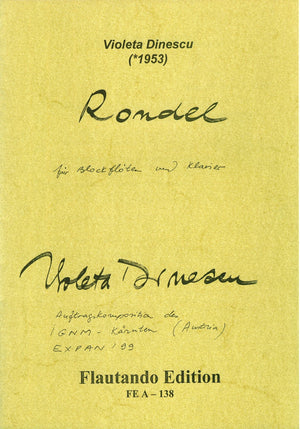 Violeta Dinescu
(*1953)
Rondel
für Blockflöten und Klavier
Violeta Dinescu
Auftragskomposition der
IGNM - Kärnten (Austria)
EXPAN '99
Flautando Edition
FE A – 138